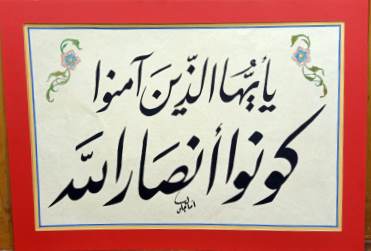 يأيُّها الذّينَ آمنوا
كونوا أنصَارَ اللّه